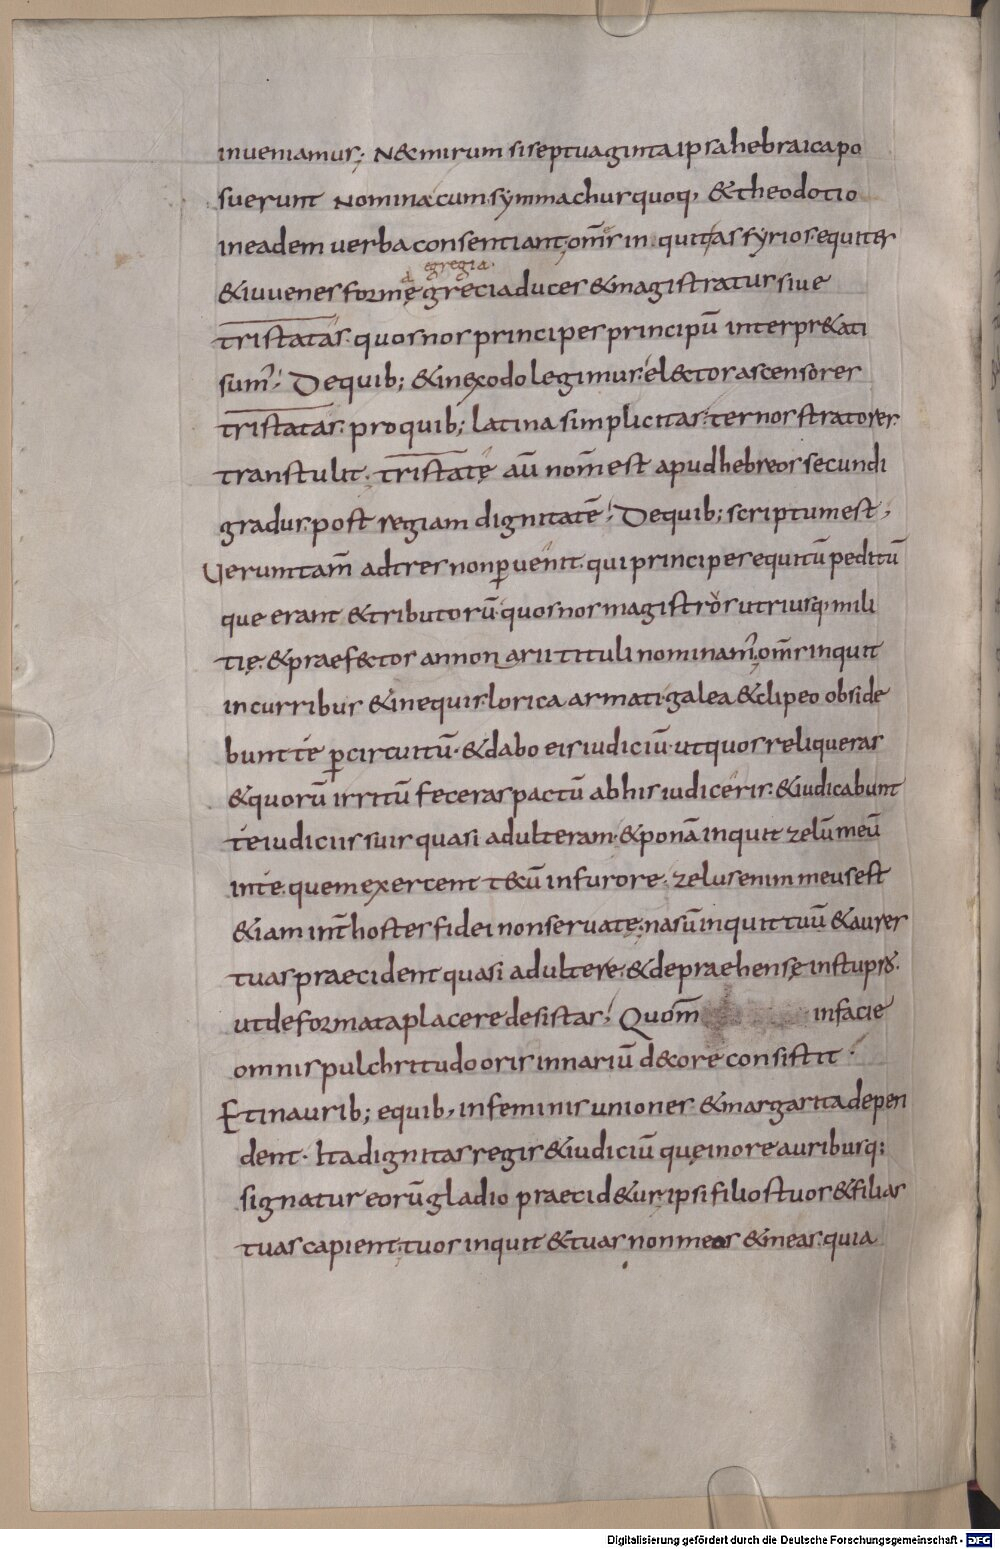 inueniamus; N&mirum siseptuaginta ipsa hebraica po
suerunt Nomina cum symmachus quoq, & theodotio
in eadem uerba consentiant, om̅s in quit as syrios equites
egregia
& iuuenes formę greci a duces & magistratus siue
tristatas quos nos principes principū interpr&ati
sum̅; De quib; & in exodo legimus el&tos ascensores
tristatas pro quib; latina simplicitas ternos stratores
transtulit. tristatę aū nom̅ est apud hebreos secundi
gradus post regiam dignitatē; De quib; scriptum est,
Ueruntam̅ ad tres non ꝑuenit qui principes equitū peditū
que erant & tributorū quos nos magistros utriusq, mili
tię & praef&tos annonarii tituli nominam̅, om̅s inquit
in curribus & in equis lorica armati galea & clipeo obside
bunt te ꝑ circuitū & dabo eis iudiciū ut quos reliqueras
& quorū irritū feceras pactū ab his iudiceris & iudicabunt
te iudiciis suis quasi adulteram & ponā inquit zelū meū
in te quem exercent t&ū in furore. zelus enim meus est
& iam int̅ hostes fidei non seruatę, nasū inquit tuū & aures
tuas praecident quasi adultere & depraehensę in stupro
ut deformata placere desistas; Quom̅ in facie
omnis pulchritudo oris in nariū d&ore consistit.
Et in aurib; e quib, in feminis uniones & margarita depen
dent. Ita dignitas regis & iudiciū quę in ore auribusq;
signatur eorū gladio praecid&ur, ipsi filios tuos & filias
tuas capient, tuos inquit & tuas non meos & meas quia
Digitalisierung gefördert durch die Deutsche Forschungsgemeinschaft - DFG